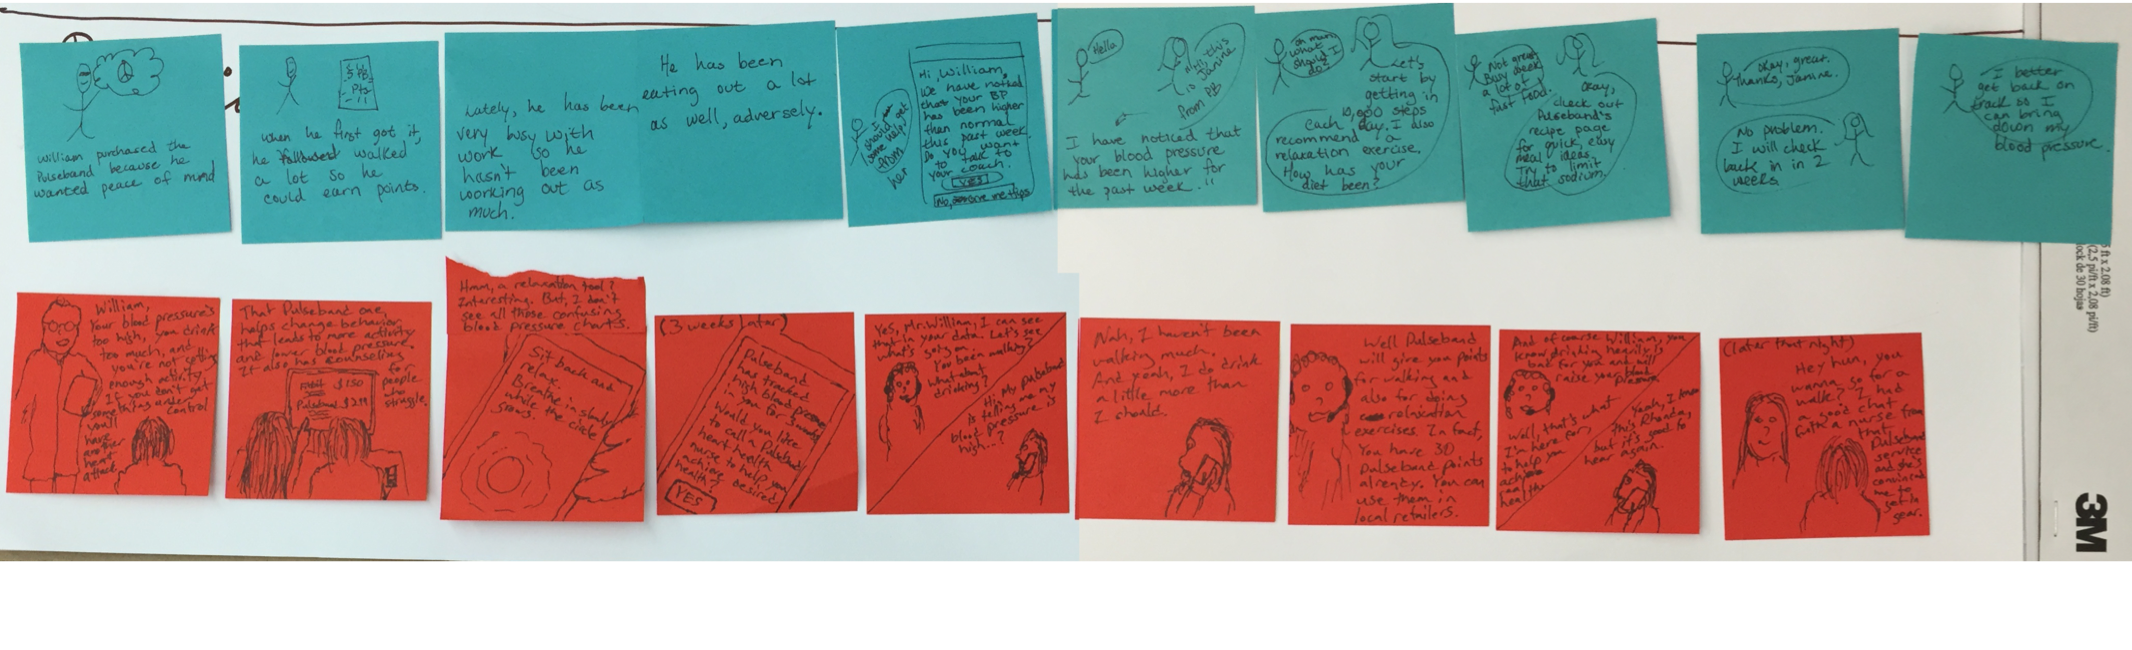 William purchased the
Pulseband because he
wanted peace of mind
5 PB
Pts
when he first got it,
he followed walked
a lot so he
could earn points.
Lately, he has been
very busy with
work so he
hasn't been
working out as
much.
He has been
eating out a lot
as well, adversely.
I
should get
some help
Hi, William,
we have noticed
that your BP
has been higher
than normal
this past week.
Do you want
to talk to
your coach.
YES
No, give me tips
Hello
Hi, this
is Janine
from PB
I have noticed that
your blood pressure
has been higher for
the past week.
oh man,
what
should I
do?
Let's
start by
getting in
10,000 steps
each day. I also
recommend a
relaxation exercise.
How has your
diet been?
Not great.
Busy week
a lot of
fast food.
Okay,
check out
Pulseband's
recipe page
for quick, easy
meal ideas.
Try to limit
that sodium.
Okay, great.
Thanks, Janine.
No problem.
I will check
back in in 2
weeks.
I better
get back on
track so I
can bring
down my
blood pressure.
William,
Your blood pressure's
too high, you drink
too much, and
you're not getting
enough activity.
If you don't get
something under
control
you'll
have
another
heart
attack.
That Pulseband one
helps change behavior
that leads to more activity
and lower blood pressure.
It also has counseling
for
people
who
struggle.
Fitbit $150
Pulseband $299
Hmm, a relaxation tool?
Interesting. But, I don't
see all those confusing
blood pressure charts.
Sit back and
relax.
Breathe in slowly
while the circle
grows.
(3 weeks later)
Pulseband
has tracked
high blood pressure
in you for 3 weeks.
Would you like
to call a Pulseband
heart health
nurse to help you
achieve desired
health?
YES
Yes, Mr. William, I can see
that in your data. Let's see
what's going on.
You been walking?
What about
drinking?
Hi, My Pulseband
is telling me my
blood pressure is
high...?
Nah, I haven't been
walking much.
And yeah, I do drink
a little more than
I should.
Well Pulseband
will give you points
for walking and
also for doing
relaxation
exercises. In fact,
You have 30
Pulseband points
already. You can
use them in
local retailers.
And of course William, you
know drinking heavily is
bad for you and will
raise your blood
pressure.
Well, that's what
I'm here for,
to help you
achieve
health
Yeah, I know
this Rhonda,
but it's good to
hear again.
(later that night)
Hey hun, you
wanna go for a
walk? I had
a good chat
with a nurse from
that
Pulseband
service
and she's
convinced
me to
get in
gear.
5 ft x 2.08 ft)
(2,5 pi/ft x 2,08 pi/ft)
lock de 30 hojas
3M